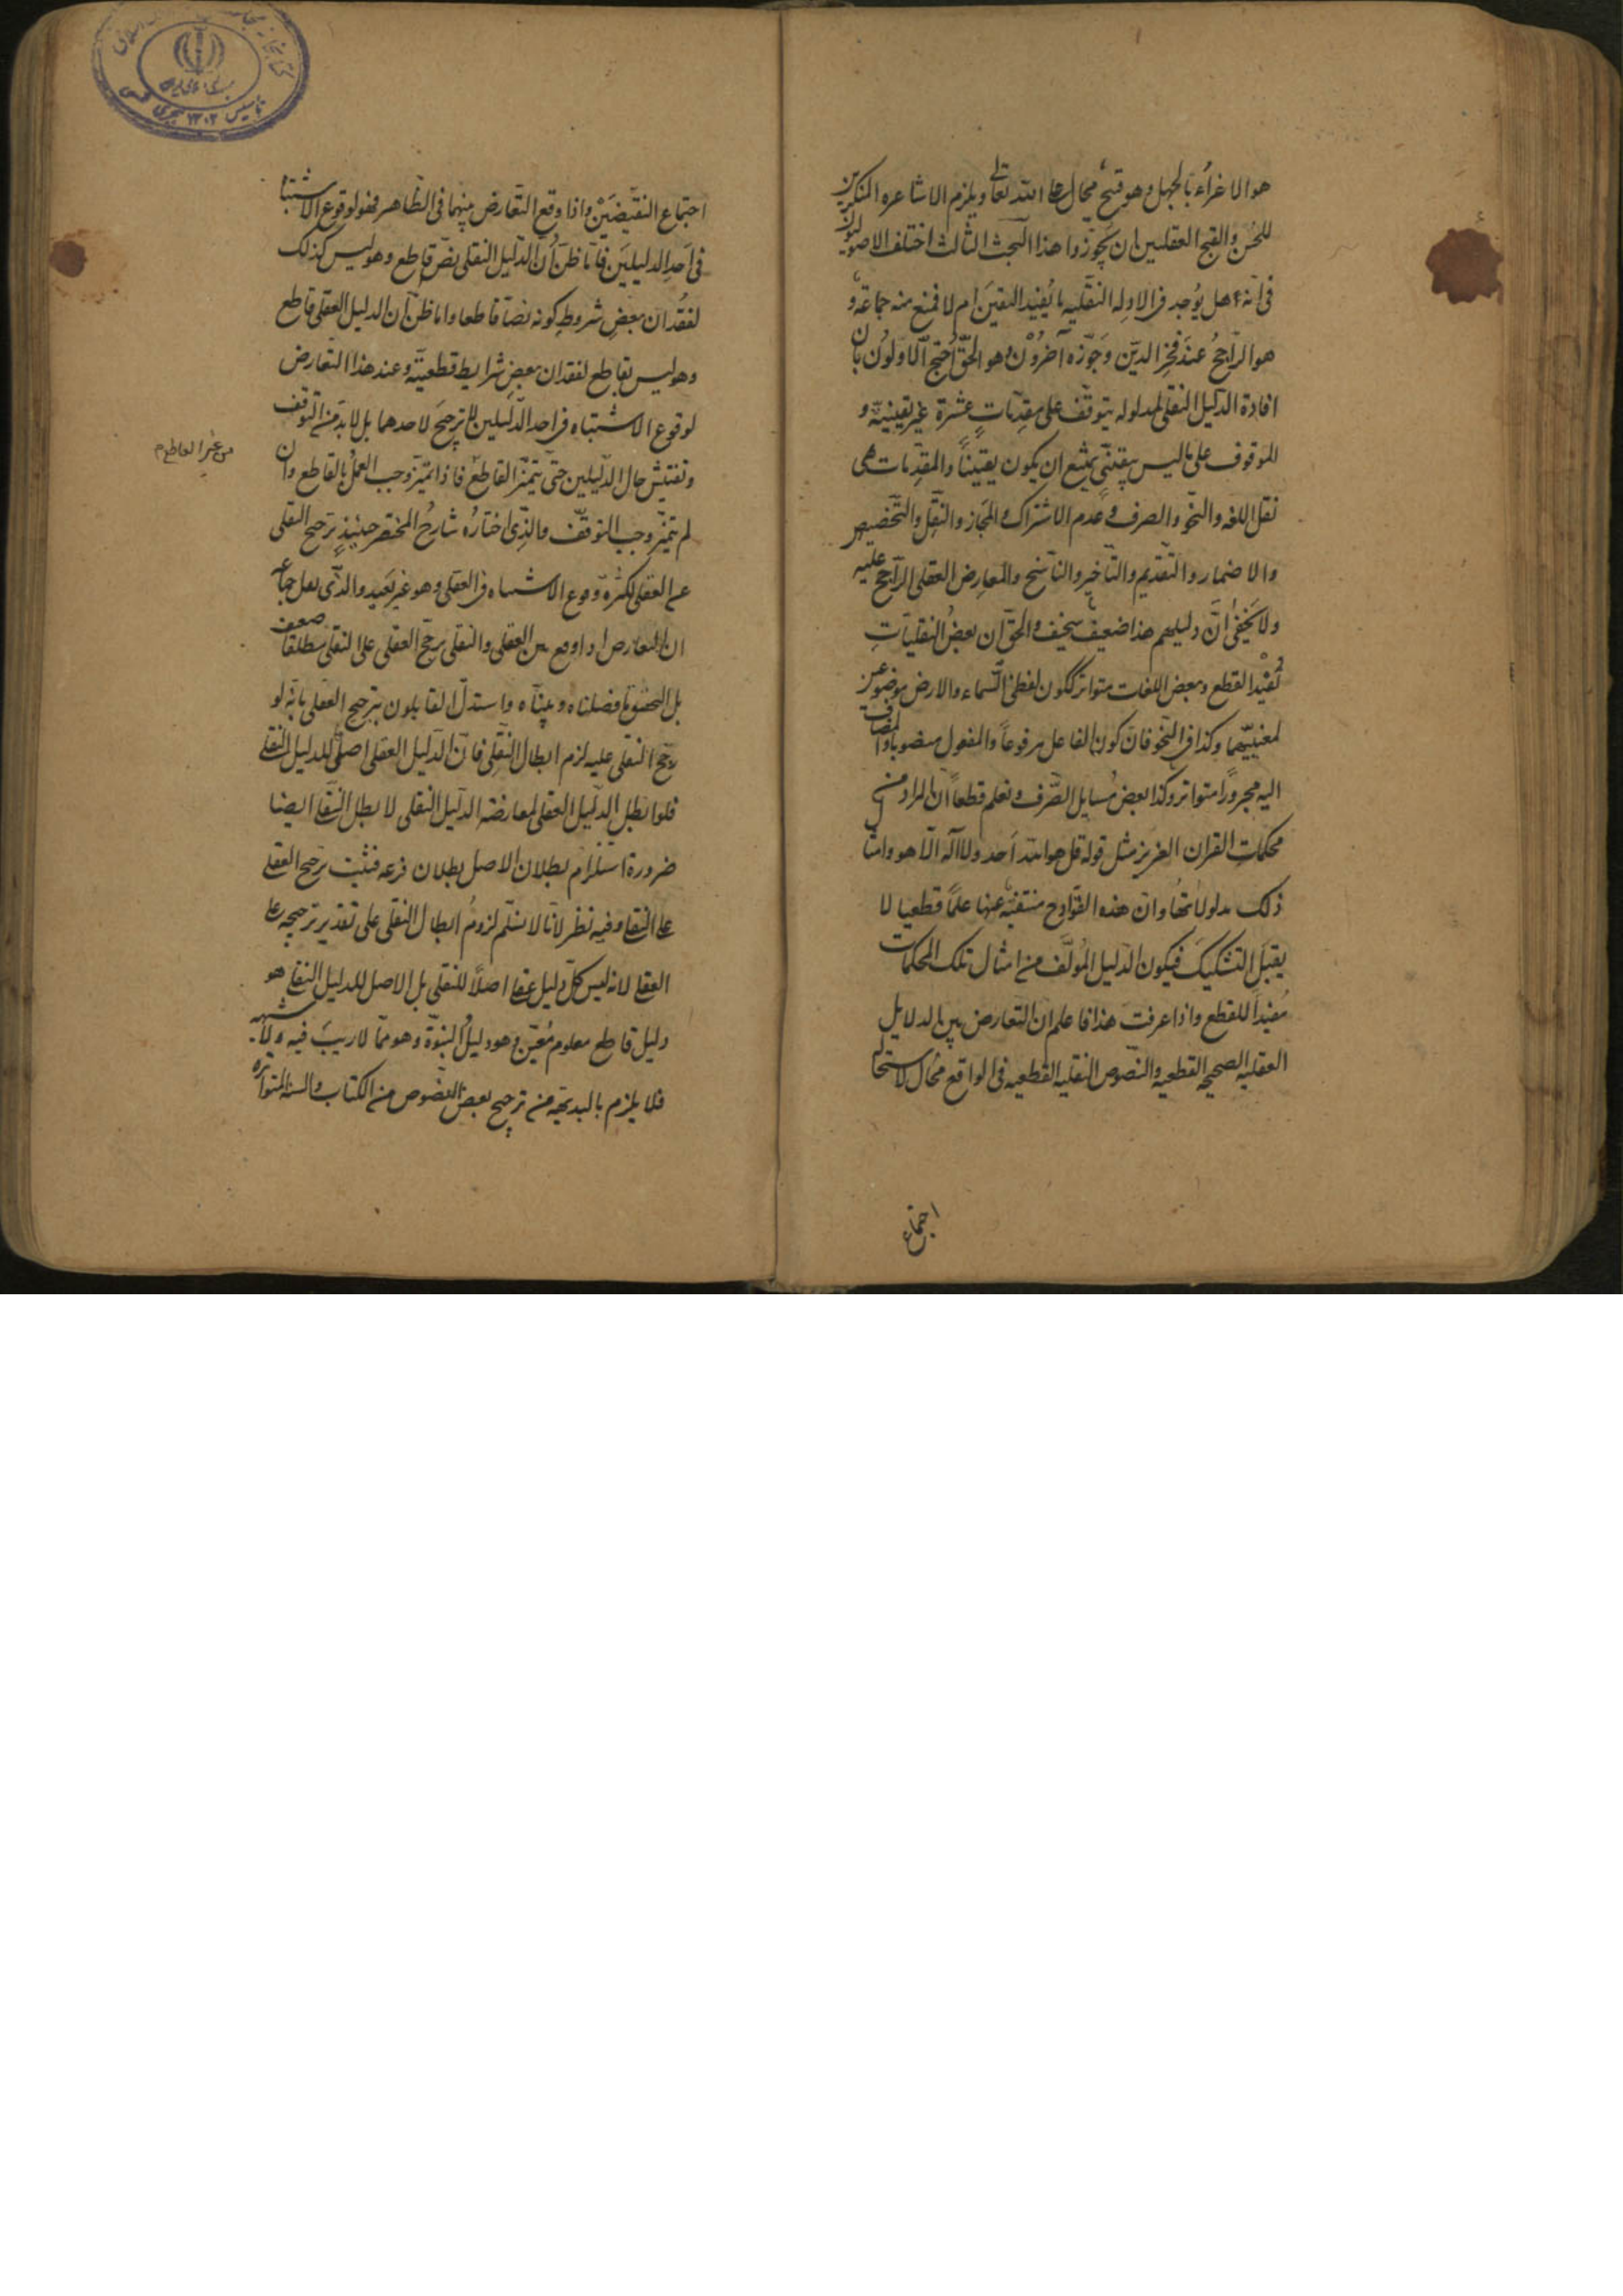 هو الاغراء بالجهل وهو قبيح محال على الله تعالى ويلزم الاشاعره المنكرين
للحسن والقبح العقليين ان يجوزوا هذا البحث الثالث اختلف الاصوليون
فى انه هل يوجد فى الادله النقليه ما يفيد اليقين ام لا فمنع منه جماعة و
هو الراجح عند فخر الدين وجوزه آخرون وهو الحق احتج الاولون بان
افادة الدليل النقلى لمدلوله يتوقف على مقدمات عشرة غير يقينية و
الموقوف على ما ليس بيقينى يمتنع ان يكون يقينيا والمقدمات هى
نقل اللغه والنحو والصرف وعدم الاشتراك والمجاز والنقل والتخصيص
والاضمار والتقديم والتاخير والناسخ والمعارض العقلى الراجح عليه
ولا يخفى ان دليلهم هذا ضعيف سخيف والحق ان بعض النقليات
تفيد القطع وبعض اللغات متواتر ككون لفظى السماء والارض موضوعين
لمعنييهما وكذا فى النحو فان كون الفاعل مرفوعا والمفعول منصوبا والمضاف
اليه مجرورا متواتر وكذا بعض مسايل الصرف ونعلم قطعا ان المراد من
محكمات القران العزيز مثل قوله قل هو الله احد ولا اله الا هو وامثال
ذلك مدلولاتها وان هذه القوادح منتفية عنها علما قطعيا لا
يقبل التشكيك فيكون الدليل المؤلف من امثال تلك المحكمات
مفيدا للقطع واذا عرفت هذا فاعلم ان التعارض بين الدلايل
العقليه الصحيحه القطعيه والنصوص النقليه القطعيه فى الواقع محال لاستحالة
اجتماع
اجتماع النقيضين واذا وقع التعارض بينهما فى الظاهر فهو لوقوع الاشتباه
فى احد الدليلين فاما ظن ان الدليل النقلى نص قاطع وهو ليس كذلك
لفقدان بعض شروط كونه نصا قاطعا واما ظن ان الدليل العقلى قاطع
وهو ليس بقاطع لفقدان بعض شرايط قطعيته وعند هذا التعارض
لوقوع الاشتباه فى احد الدليلين لا ترجيح لاحدهما بل لا بد من التوقف
وتفتيش حال الدليلين حتى يتميز القاطع فاذا تميز وجب العمل بالقاطع وان
من غير القاطع م
لم يتميز وجب التوقف والذى اختاره شارح المختصر حينئذ ترجيح النقلى
على العقلى لكثرة وقوع الاشتباه فى العقلى وهو غير بعيد والذى نقل جماعه
ان التعارض اذا وقع بين العقلى والنقلى يرجح العقلى على النقلى مطلقا ضعيف
بل التحقيق ما فصلناه وبيناه واستدل القايلون بترجيح العقلى بانه لو
رجح النقلى عليه لزم ابطال النقلى فان الدليل العقلى اصل للدليل النقلى
فلو ابطل الدليل العقلى لمعارضة الدليل النقلى لابطل النقلى ايضا
ضرورة استلزام بطلان الاصل بطلان فرعه فثبت ترجيح العقلى
على النقلى وفيه نظر لانا لا نسلم لزوم ابطال النقلى على تقدير ترجيحه على
العقلى لانه ليس كل دليل عقلى اصلا للنقلى بل الاصل للدليل النقلى هو
دليل قاطع معلوم معين وهو دليل النبوة وهو مما لا ريب فيه ولا شبهه
فلا يلزم بالبديهة من ترجيح بعض النصوص من الكتاب والسنه المتواتره